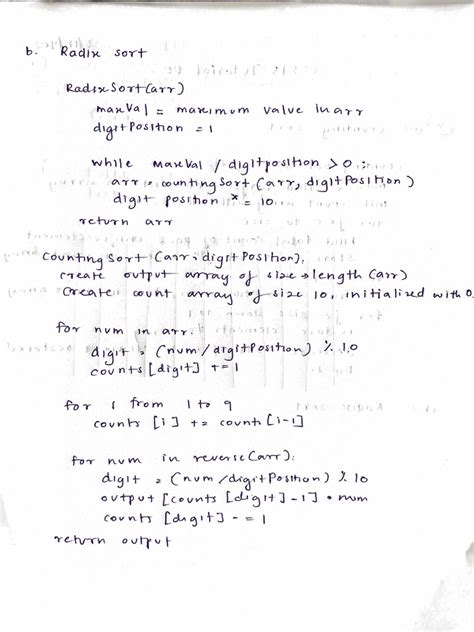 b. Radix sort
RadixSort(arr)
maxVal = maximum value in arr
digitPosition = 1
while maxVal / digitposition > 0 :
arr = countingSort (arr, digitPosition)
digit position *= 10
return arr
countingSort (arr, digitPosition),
create output array of size = length (arr)
create count array of size 10, initialized with 0.
for num in arr:
digit = (num / digitPosition) % 10
counts [digit] += 1
for i from 1 to 9
counts [i] += counts [i-1]
for num in reverse(arr):
digit = (num / digitPosition) % 10
output [counts [digit] - 1] = num
counts [digit] -= 1
return output